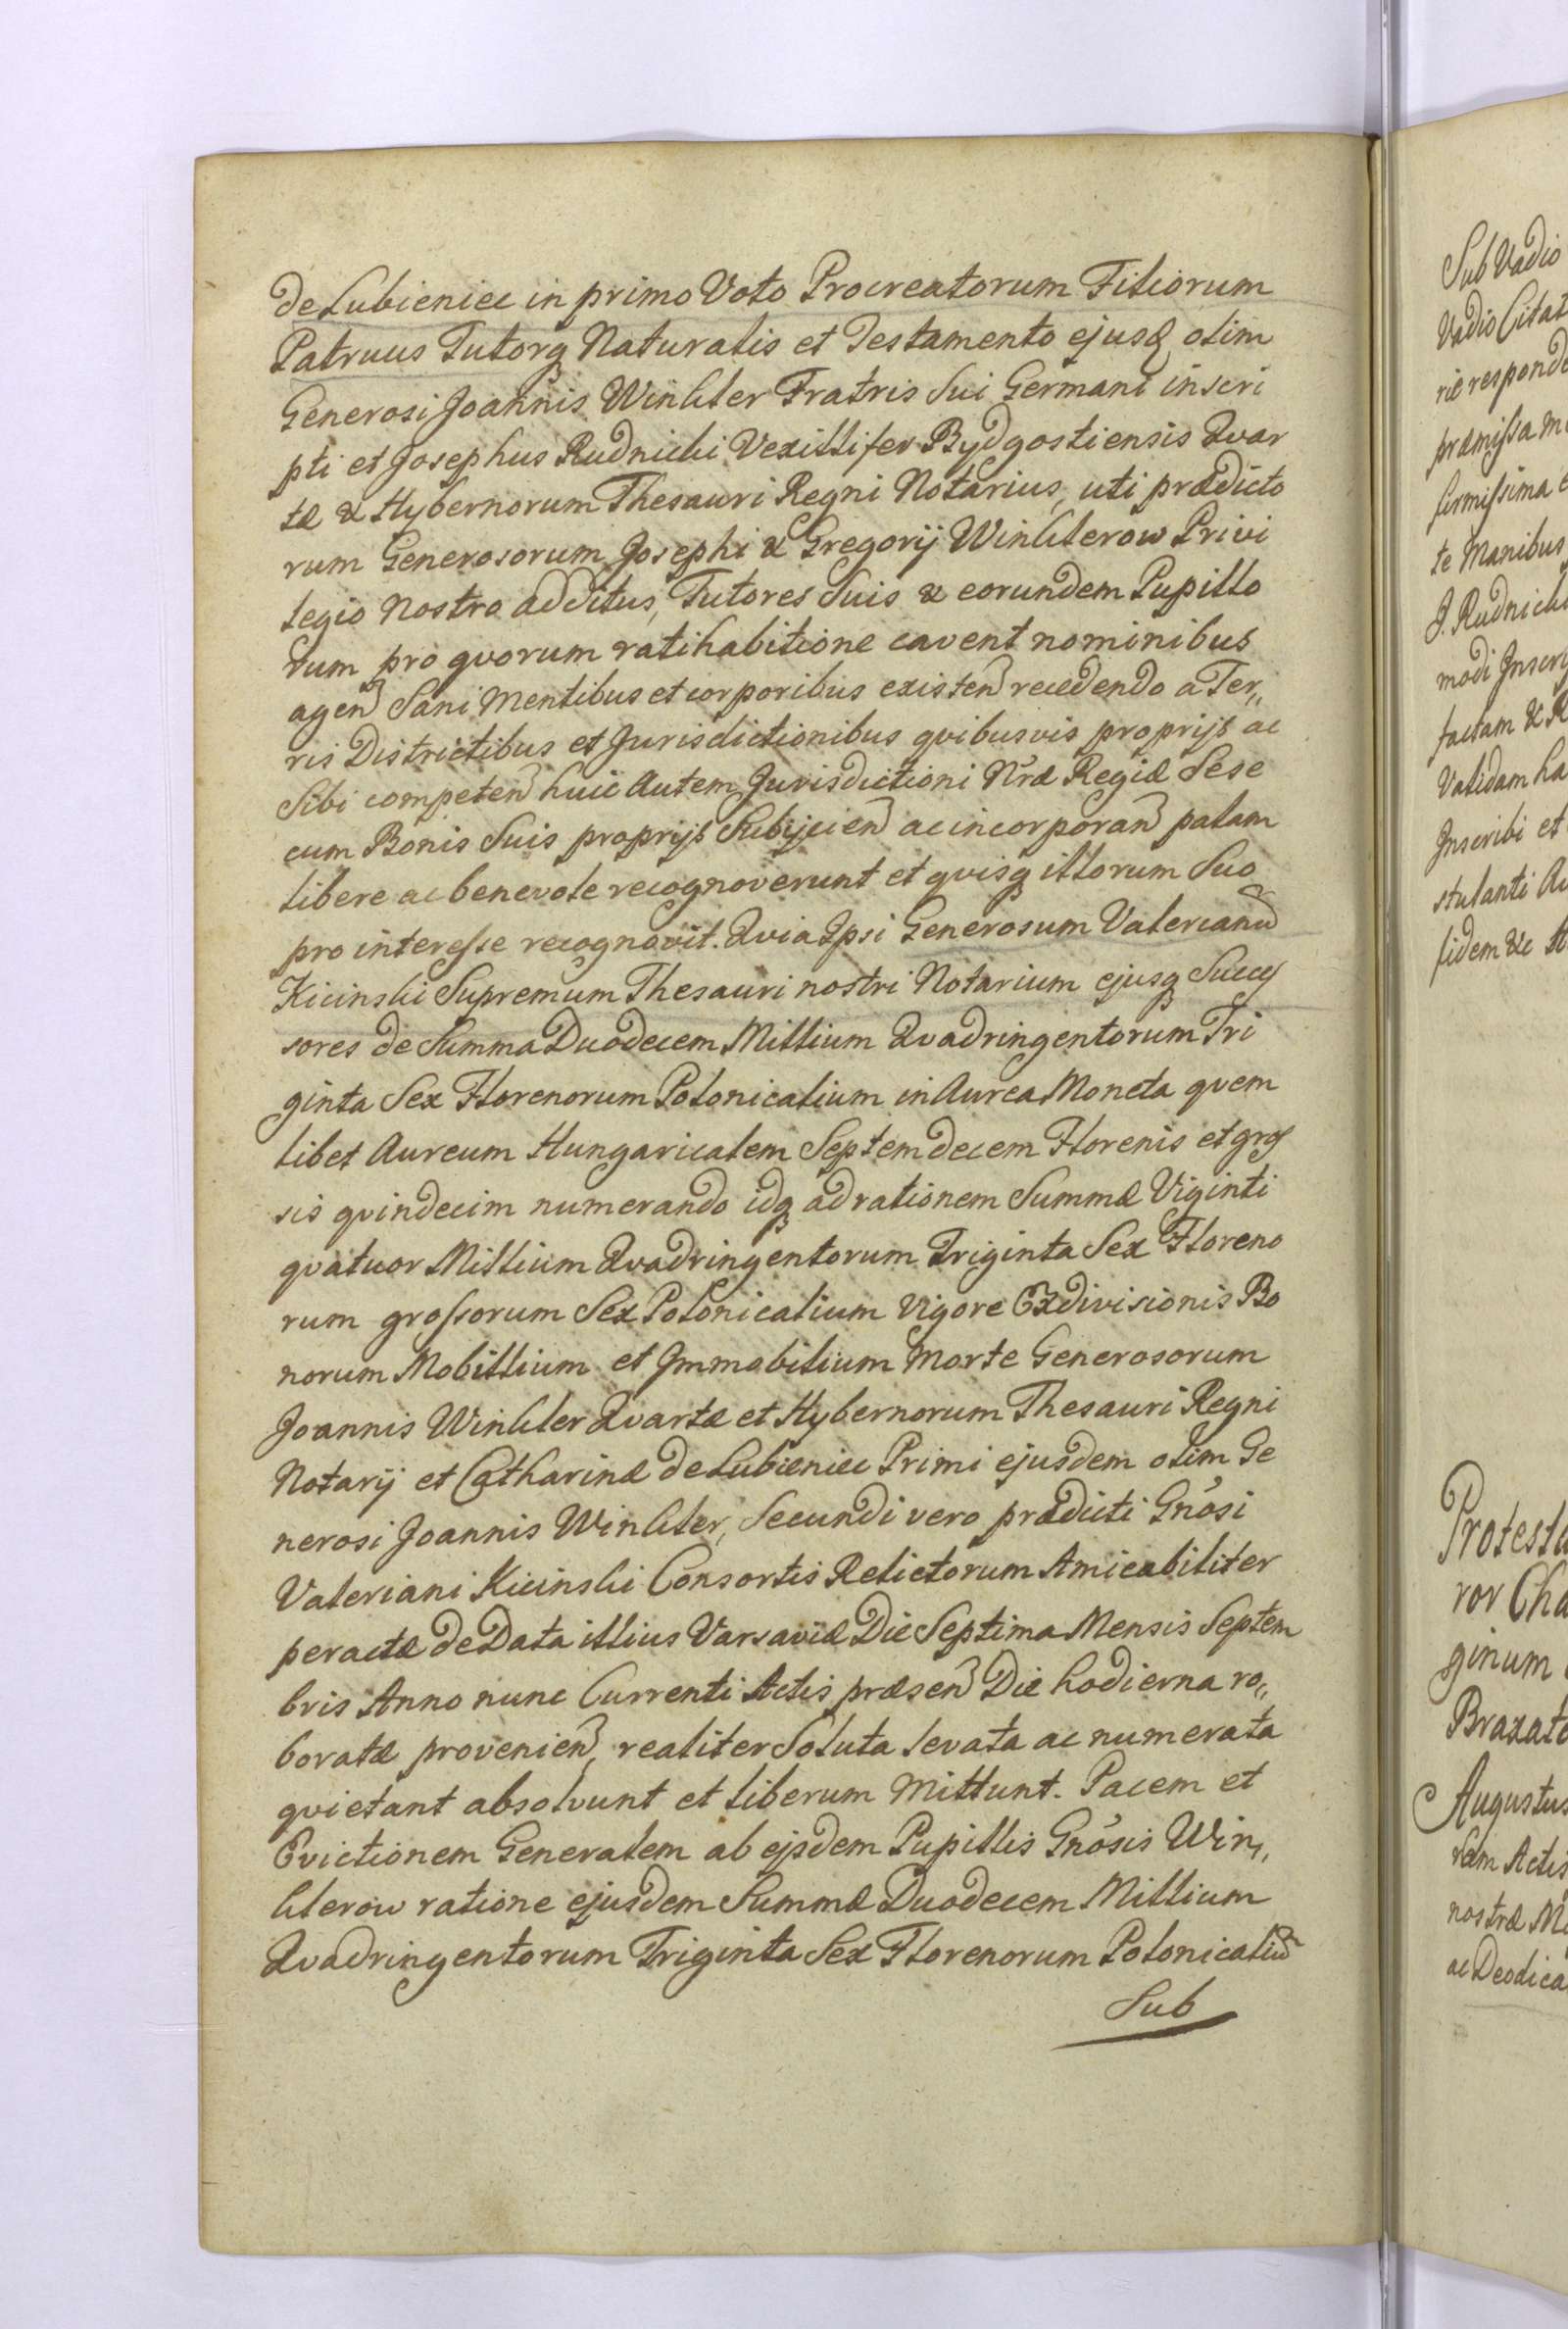 de Lubieniec in primo Voto Procreatorum Filiorum
Patruus Tutorq Naturalis et Testamento ejusd olim
Generosi Joannis Winkler Fratris Sui Germani inscri
pti et Josephus Rudnicki Vexillifer Bydgostiensis Qvar
tæ & Hybernorum Thesauri Regni Notarius, uti prædicto
rum Generosorum Josephi & Gregorij Winklerow Privi
legio Nostro additus, Tutores Suis & eorundem Pupillo
rum pro qvorum ratihabitione cavent nominibus
agen Sani Mentibus et corporibus existen recedendo a Ter„
ris Districtibus et Jurisdictionibus qvibusvis proprijs ac
Sibi competen huic Autem Jurisdictioni Nræ Regiæ Sese
cum Bonis Suis proprijs Subijcien ac incorporan palam
libere ac benevole recognoverunt et qvisq illorum Suo
pro interesse recognovit. Qvia Ipsi Generosum Valerianu
Kicinski Supremum Thesauri nostri Notarium ejusq Succes
sores de Summa Duodecem Millium Qvadringentorum Tri
ginta Sex Florenorum Polonicalium in Aurea Moneta qvem
libet Aureum Hungaricalem Septemdecem Florenis et gros
sis qvindecim numerando idq ad rationem Summæ Viginti
qvatuor Millium Qvadringentorum Triginta Sex Floreno
rum grossorum Sex Polonicalium vigore Exdivisionis Bo
norum Mobillium et Immobilium Morte Generosorum
Joannis Winkler Qvartæ et Hybernorum Thesauri Regni
Notarij et Catharinæ de Lubieniec Primi ejusdem olim Ge
nerosi Joannis Winkler, Secundi vero prædicti Gnosi
Valeriani Kicinski Consortis Relictorum Amicabiliter
peractæ de Data illius Varsaviæ Die Septima Mensis Septem
bris Anno nunc Currenti Actis præsen Die hodierna ro„
boratæ provenien, realiter Soluta levata ac numerata
qvietant absolvunt et liberum Mittunt. Pacem et
Evictionem Generalem ab ejsdem Pupillis Gnosis Win„
klerow ratione ejusdem Summæ Duodecem Millium
Qvadringentorum Triginta Sex Florenorum Polonicaliu
Sub
Sub Vadio
Vadio Citat
rie responde
præmissa
firmissima
te Manibus
J. Rudnicki
modi Inscri
factam &
Validam ha
Inscribi et
stulanti
fidem &c
Protesta
ror Cha
ginum
Braxato
Augustus
Actis
nostræ
ac Deodica